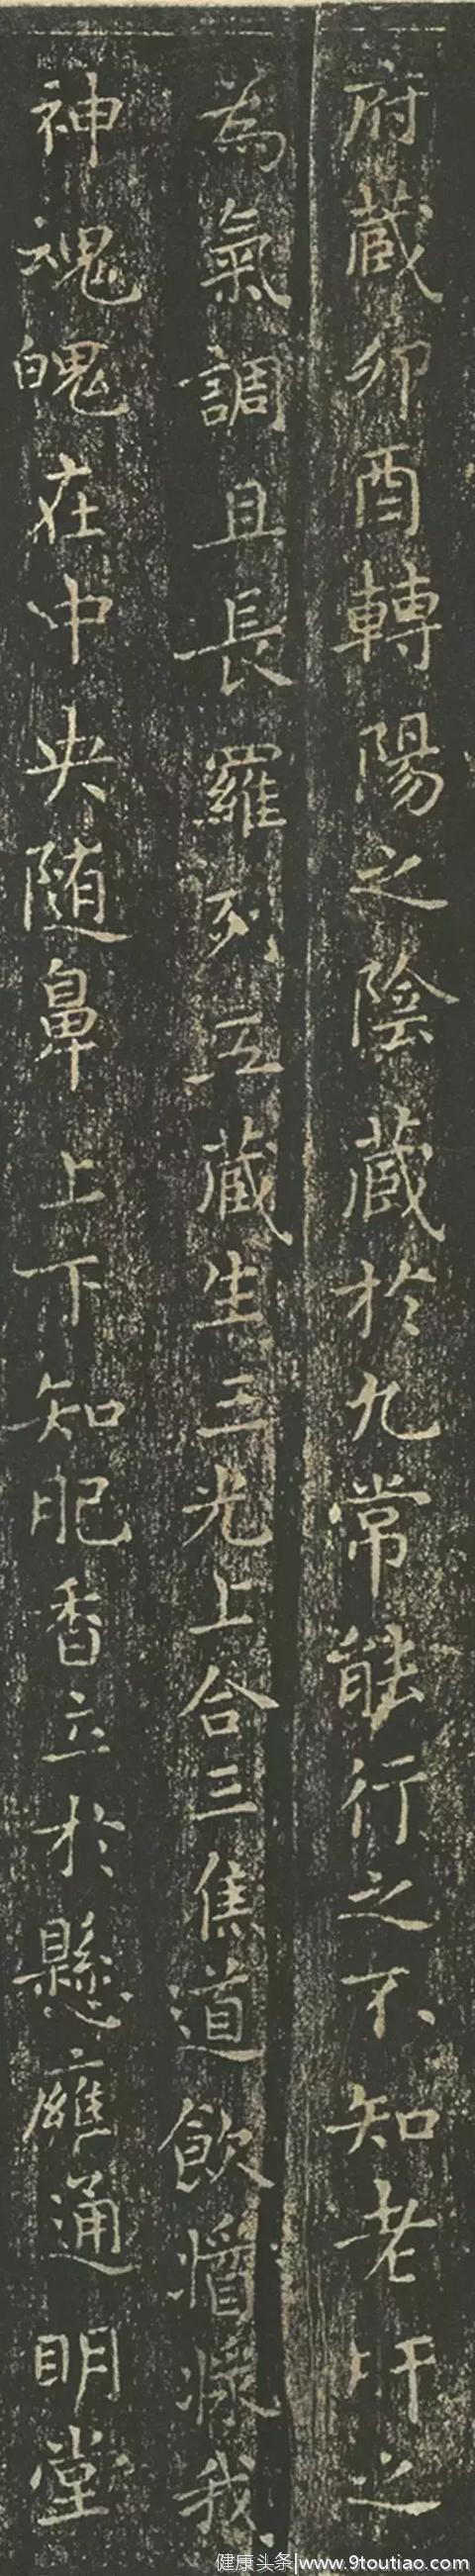 府藏卯酉轉陽之陰藏於九常能行之不知老肝之
為氣調且長羅列五藏生三光上合三焦道飲醬漿我
神魂魄在中央随鼻上下知肥香立於懸廱通明堂
健康头条|www.9toutiao.com